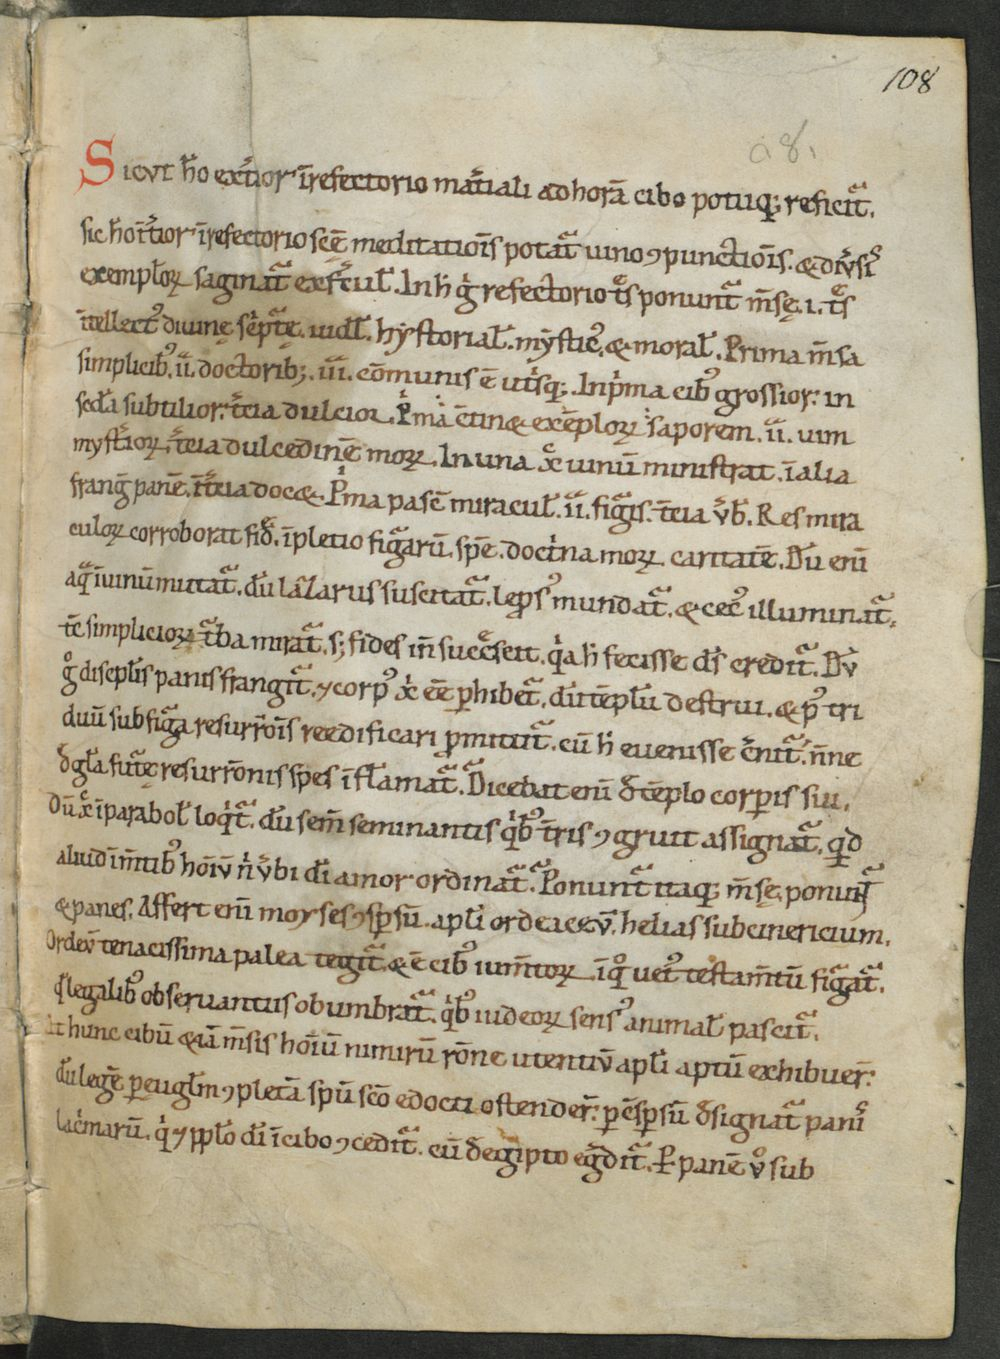 108
a 8.
Sicut h̄o ext̄ior ī refectorio mat̄iali ad horā cibo potuq; reficit᷑.
sic hoīt̄ior ī refectorio scē meditatiois potat᷑ uino ꝯpunctiois. & diu̾si
exemploꝝ saginat᷑ Inh g̊ refectorio t̄s ponunt᷑ m̄sę. i. t̄s
ītellect᷒ diuinę sc̓ptę. uidl̄. hystorial̄. mystic᷒. & moral̄. Prima m̄sa
simplicib᷒. ii. doctorib;. iii. cōmunis ē ut̓sq;. In p̓ma cib᷒ grossior: in
sed̄a subtilior: t̄cia dulcior. P̓ma ētin& exēploꝝ saporem. ii. uim
myst̄ioꝝ. t̄cia dulcedinē moꝝ. In una x̄c uinū ministrat. ī alia
franḡ panē. ī t̄cia doc&. P̓ma pasc̄ miracul̄. ii. fig̓is. t̄cia v̄b̄. Res mira
culoꝝ corroborat fid̄. īpletio fig᷑arū. spē. doct̓na moꝝ. caritatē. Dū enī
aq̄ ī uinū mutat᷑. dū lāzarus suscitat᷑. lepros᷒ mundat᷑. & cec᷒ illuminat᷑.
tc̄ simplicioꝝ t᷑ba mirat᷑. s; fides in̄ succ̄scit. q̓a h̄ fecisse d̄s credit᷑. Dū
g̊ discipl̄is panis frangit᷑. ⁊ corp᷒ x̓ ēē ꝑhibet᷑. dū tēplū destrui. & p᷒ tri
duū sub fig᷑a resurr̄ois reedificari ꝓmittit᷑. cū h̄ euenisse c̄nit᷑. n̄ne
đ gl̄a fut᷑ę resurr̄onis spes īflamat᷑. Dicebat enī đ tēplo corꝑis sui.
Dū x̄c ī parabol̄ loq̓t᷑. dū sem̄ seminantis q̓b᷒ t̄ris ꝯgruit assignat᷑. qđ
aliud ī m̄tib᷒ hoīū n̓ v̄bi đi amor ordinat᷑. Ponunt᷑ itaq; m̄sę. ponunt᷑
& panes. Affert enī moyses ꝯspsū. apl̄i ordeaceū. helias subcinericium.
Ordeū tenacissima palea tegit᷑. & ē cib᷒ ium̄toꝝ. ī q̊ uet᷒ testam̄tū fig᷑at᷑.
q̄ legalib᷒ obseruantiis obumbrat᷑. q̓b᷒ iudeoꝝ sens᷒ animal̄ pascit᷑.
At hunc cibū &iā m̄sis hoīū nimirū rōne utentiū apl̄i aptū exhibuer̄:
dū legē ꝑ euglm ꝯpletā spū scō edocti ostender̄: ꝑ ꝯspsū đsignat᷑ pani᷒
lac̓marū. q̓ ⁊ ppl̄o đi ī cibo ꝯcedit᷑. cū đ egipto eg̓dit᷑. Ꝑ panē v̊ sub